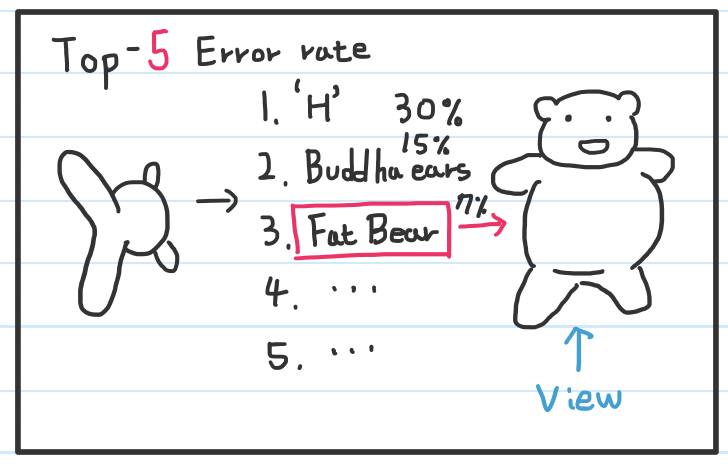 Top-5 Error rate
1. 'H' 30%
2. Buddha ears 15%
3. Fat Bear 7%
4. ...
5. ...
View